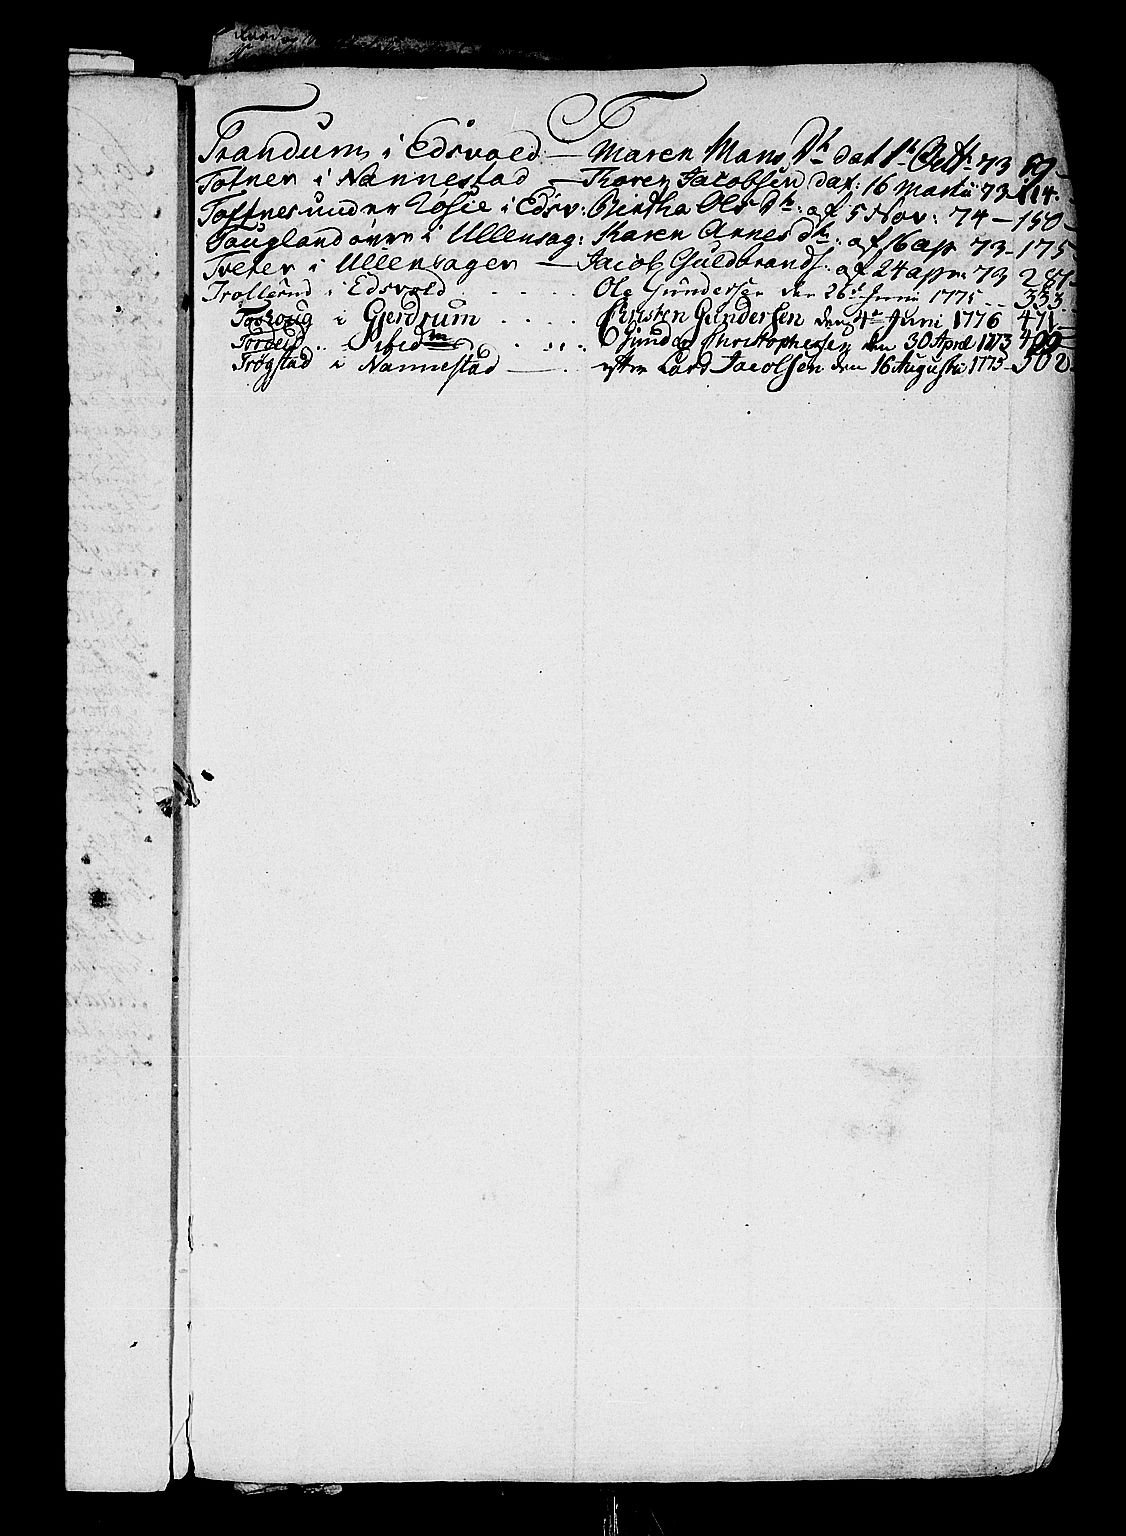 T
Trandum i Edsvold — Maren Mons Dh dat 1t Octh 73 89
Tofner i Nannestad — Karen Jacobsen dat: 16 Martii 73 114.
Toftnes under Losie i Edsv: Birtha Ols Dh: af 5 Nov: 74 — 150
Taugland øvre i Ullensag: Karen Annes Dh: af 16 apr 73 — 175
Tveter i Ullensager — Jacob Guldbrands: af 24 appr: 73 281
Trollerud i Edsvold . . . . . Ole Gundersen den 26d Junii 1775 . . 333
Torhoug i Gjerdrum . . . . Christen Gundersen den 4de Juni 1776 471
ibidm . . . . Gunder Christophersen den 30 April 1773 499
Trøgstad i Nannestad — . efter Lars Jacobsen den 16 Augusti 1775 — 502